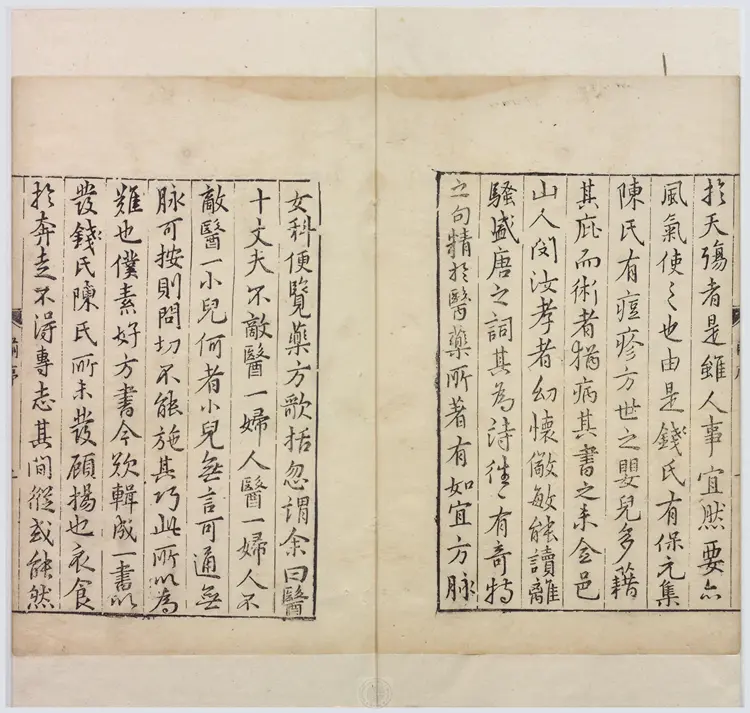 於夭殤者是雖人事宜然要亦
風氣使之也由是錢氏有保元集
陳氏有痘疹方世之嬰兒多藉
其庇而術者猶病其書之未全邑
山人閔汝孝者幼懷儆敏能讀離
騷盛唐之詞其為詩徃〻有奇特
之句精於醫藥所著有如宜方脉
女科便覽藥方歌括忽謂余曰醫
十丈夫不敵醫一婦人醫一婦人不
敵醫一小兒何者小兒無言可通無
脉可按則問切不能施其巧此所以為
難也僕素好方書今欲輯成一書以
發錢氏陳氏所未發顧揚也衣食
於奔走不得專志其間縱或能然
前序